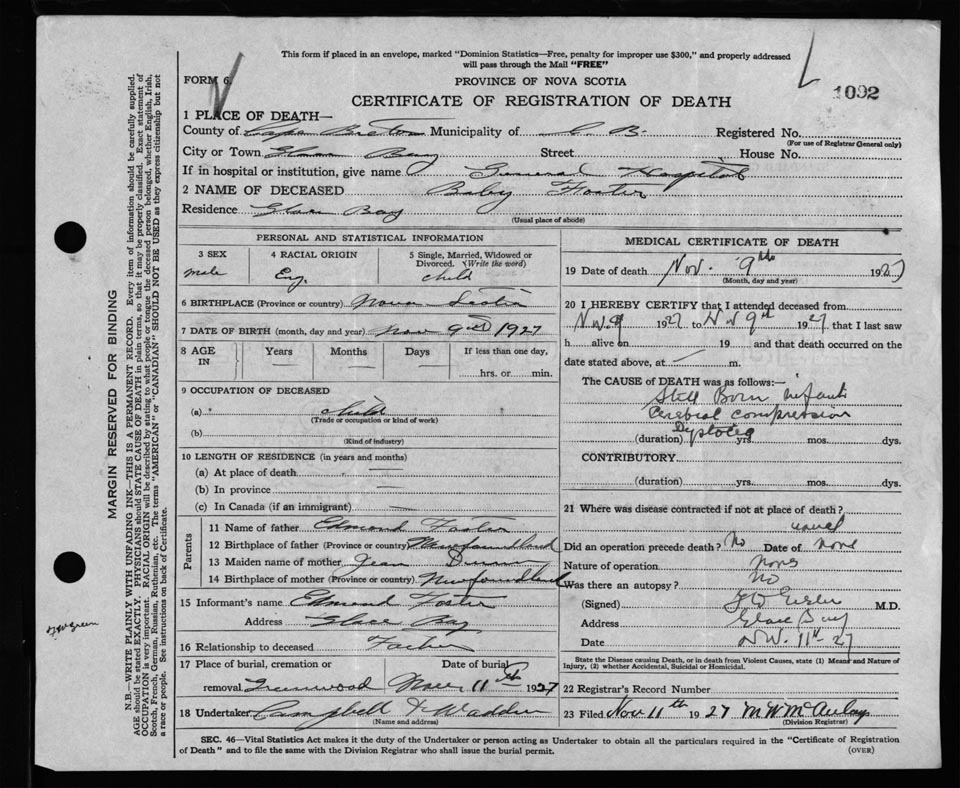 This form if placed in an envelope, marked "Dominion Statistics—Free, penalty for improper use $300," and properly addressed
will pass through the Mail "FREE"
FORM 6.
PROVINCE OF NOVA SCOTIA
1092
CERTIFICATE OF REGISTRATION OF DEATH
1 PLACE OF DEATH—
County of Cape Breton Municipality of C. B. Registered No.
(For use of Registrar General only)
City or Town Glace Bay Street House No.
If in hospital or institution, give name General Hospital
2 NAME OF DECEASED Baby Foster
Residence Glace Bay
(Usual place of abode)
PERSONAL AND STATISTICAL INFORMATION
3 SEX 4 RACIAL ORIGIN 5 Single, Married, Widowed or Divorced. (Write the word)
male Eng. child
6 BIRTHPLACE (Province or country) Nova Scotia
7 DATE OF BIRTH (month, day and year) Nov 9th 1927
8 AGE IN Years Months Days If less than one day,
hrs. or min.
9 OCCUPATION OF DECEASED
(a) child
(Trade or occupation or kind of work)
(b)
(Kind of industry)
10 LENGTH OF RESIDENCE (in years and months)
(a) At place of death
(b) In province
(c) In Canada (if an immigrant)
Parents
11 Name of father Edmond Foster
12 Birthplace of father (Province or country) Newfoundland
13 Maiden name of mother Jean
14 Birthplace of mother (Province or country) Newfoundland
15 Informant's name Edmond Foster
Address Glace Bay
16 Relationship to deceased Father
17 Place of burial, cremation or Date of burial
removal Greenwood Nov 11th 1927
18 Undertaker Campbell & Wadden
(Name and address)
MEDICAL CERTIFICATE OF DEATH
19 Date of death Nov. 9th 1927
(Month, day and year)
20 I HEREBY CERTIFY that I attended deceased from
Nov. 9 1927 to Nov 9th 1927 that I last saw
h alive on 19 and that death occurred on the
date stated above, at m.
The CAUSE of DEATH was as follows:—
Still Born infant
Cerebral compression
Dystocia
(duration) yrs. mos. dys.
CONTRIBUTORY
(duration) yrs. mos. dys.
21 Where was disease contracted if not at place of death?
Did an operation precede death? No Date of none
Nature of operation none
Was there an autopsy? No
(Signed) M.D.
Address Glace Bay
Date Nov. 11th 27
State the Disease causing Death, or in death from Violent Causes, state (1) Means and Nature of
Injury, (2) whether Accidental, Suicidal or Homicidal.
22 Registrar's Record Number
23 Filed Nov 11th 1927 M W McAulay
(Division Registrar)
SEC. 46—Vital Statistics Act makes it the duty of the Undertaker or person acting as Undertaker to obtain all the particulars required in the "Certificate of Registration
of Death" and to file the same with the Division Registrar who shall issue the burial permit.
(OVER)
MARGIN RESERVED FOR BINDING
N.B.—WRITE PLAINLY WITH UNFADING INK—THIS IS A PERMANENT RECORD. Every item of information should be carefully supplied.
AGE should be stated EXACTLY. PHYSICIANS should STATE CAUSE OF DEATH in plain terms, so that it may be properly classified. Exact statement of
OCCUPATION is very important. RACIAL ORIGIN will be described by stating to what people or tongue the deceased person belonged, whether English, Irish,
Scotch, French, German, Russian, Ruthenian, etc. The terms "AMERICAN" or "CANADIAN" SHOULD NOT BE USED as they express citizenship but not
a race or people. See instructions on back of Certificate.